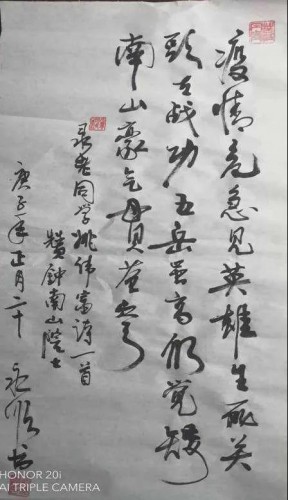 疫情危急见英雄生死关
头立战功五岳虽高仍觉矮
南山豪气贯苍穹
录老同学姚伟诗一首
赞钟南山院士
庚子年正月二十
顺书
HONOR 20i
AI TRIPLE CAMERA